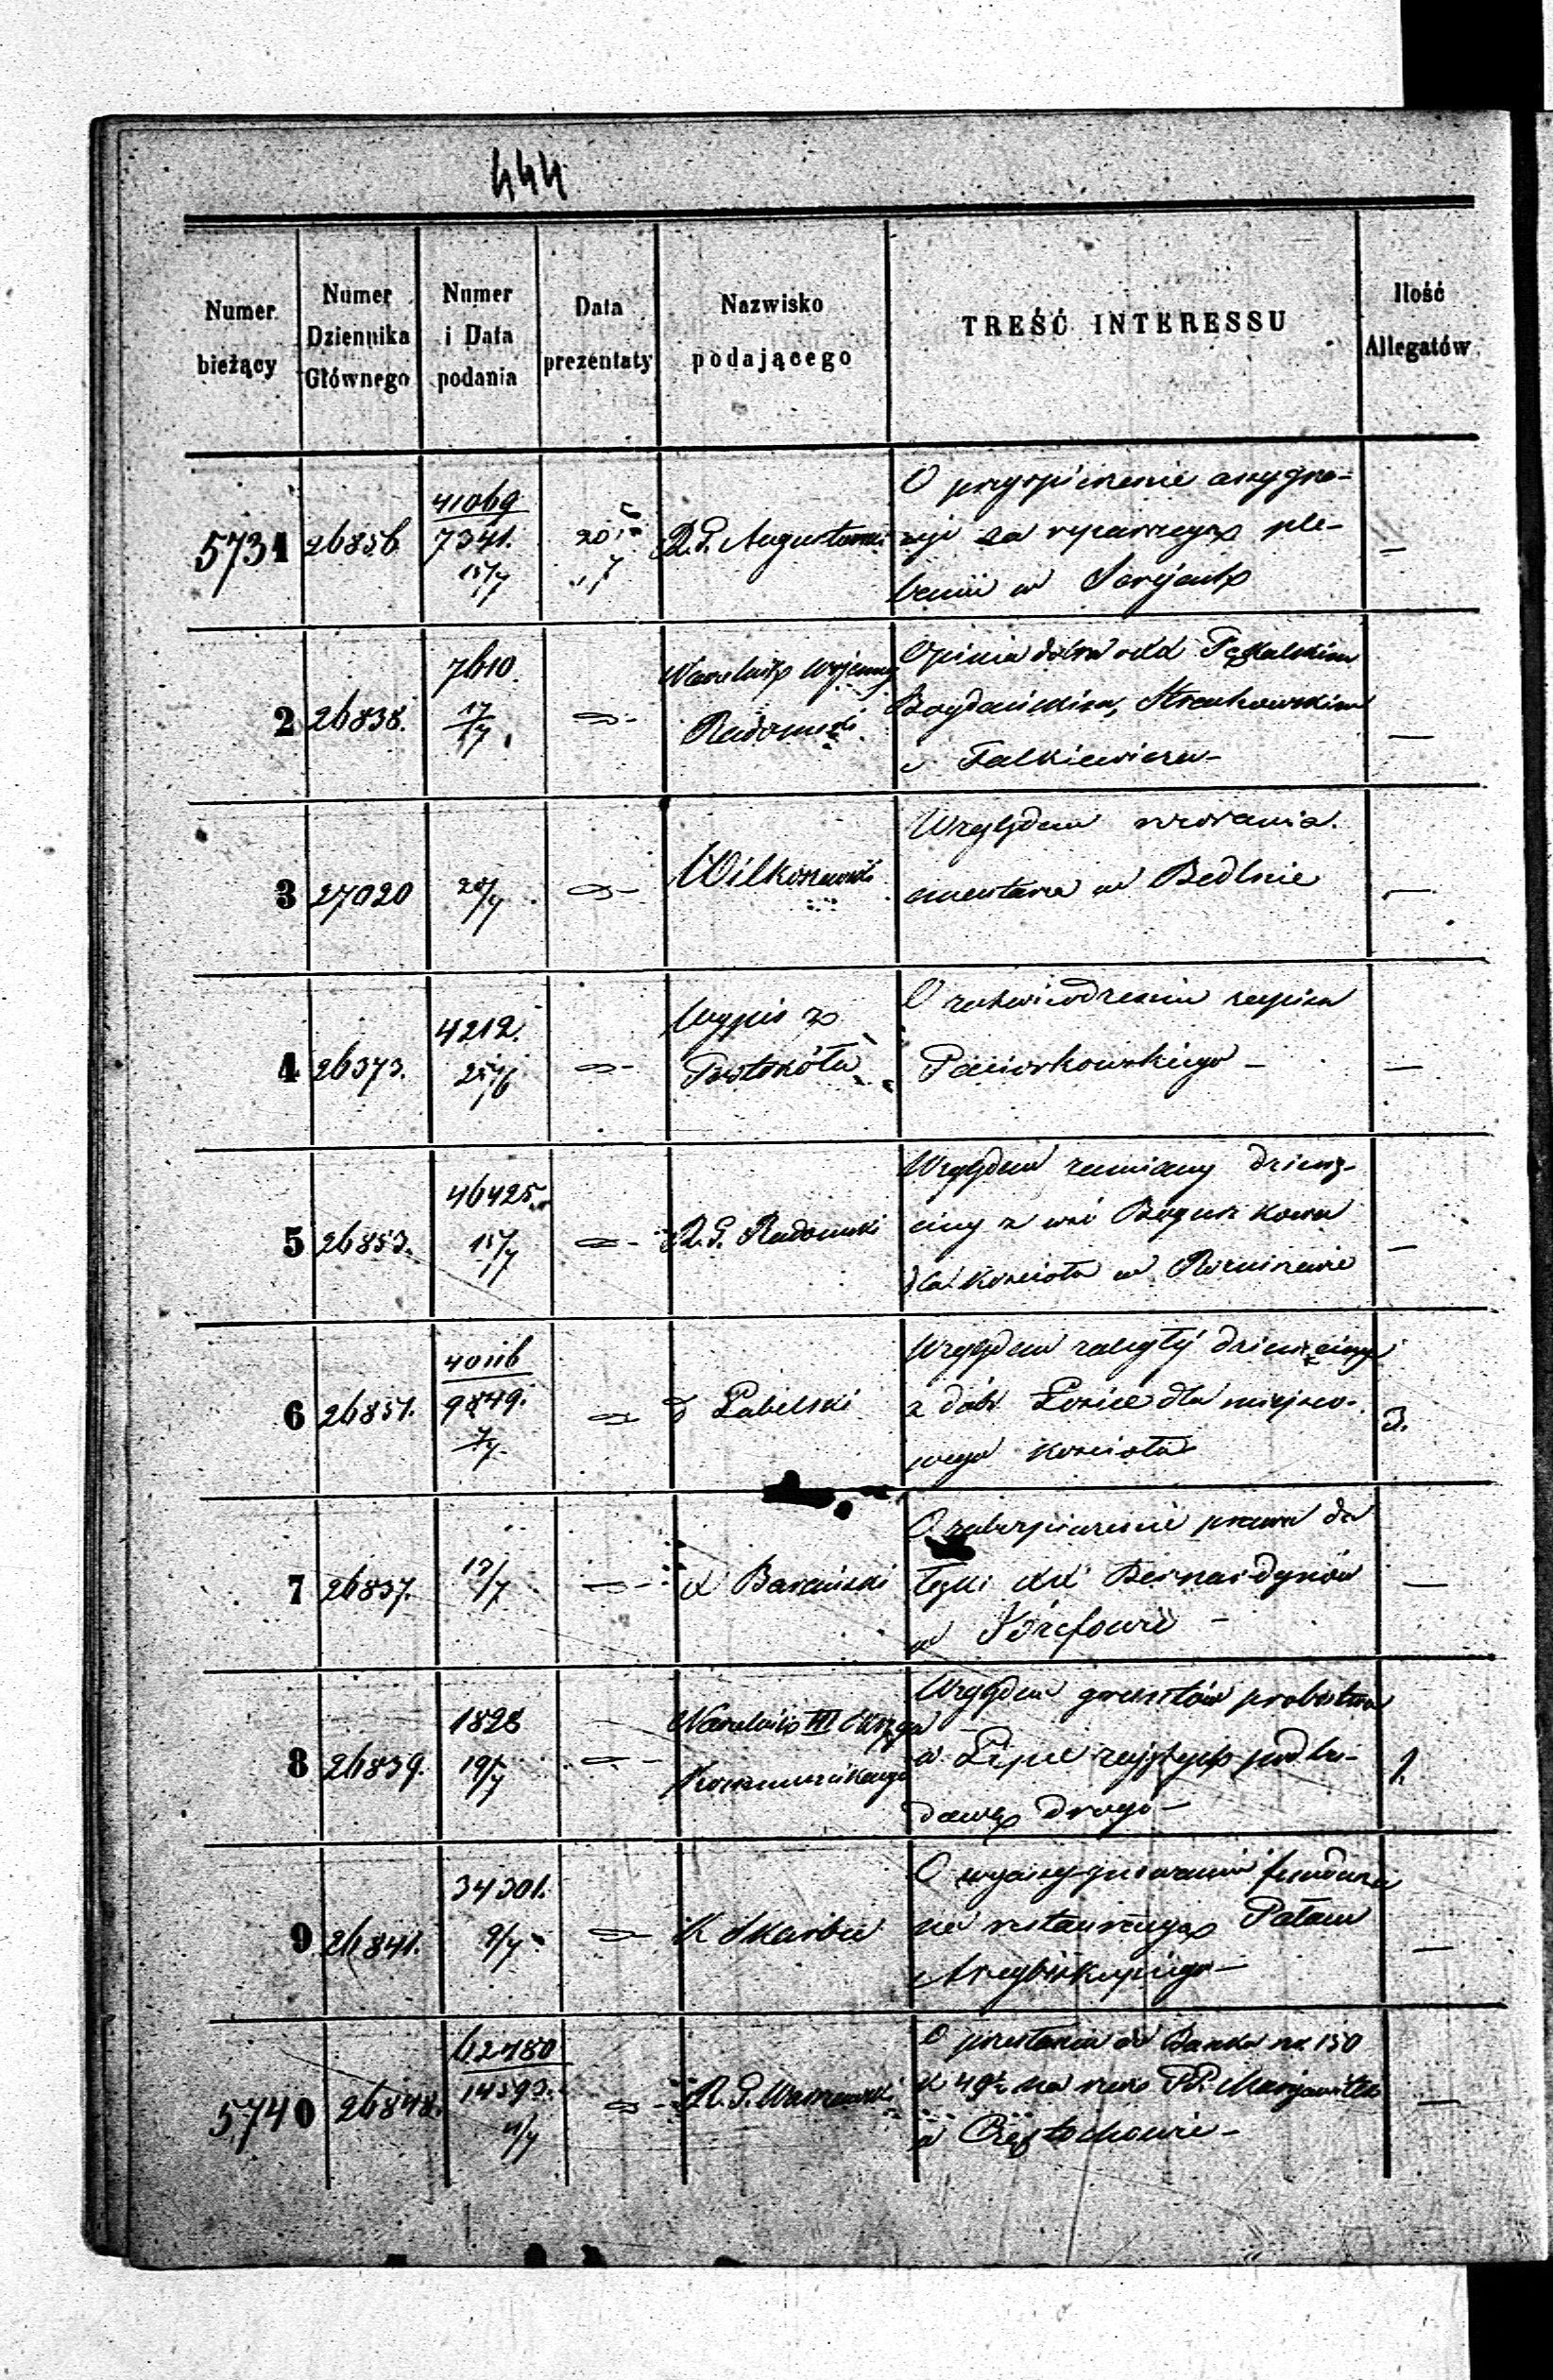 444
Numer bieżący
Numer Dziennika Głównego
Numer i Data podania
Data prezentaty
Nazwisko podającego
TREŚĆ INTERESSU
Ilość Allegatów
5731 26856 41069 7341. 15/7 20/7 R. G. Augustowski
O przyspieszenie assygna-
cyi za reparacyą ple-
banii w Serejach
—
2 26838. 7610. 17/7 Naczelnik Wojenny Radomski
Opinia dobra
Bogdańskim,
i Falkiewiczu —
—
3 27020 20/7 Wilkoszewski
Względem
cmentarza w Bedlnie
—
4 26373. 4212. 25/6 Wypis z Protokółu
O zatwierdzeniu zapisu
Paciorkowskiego —
—
5 26853. 46425. 15/7 R. G. Radomski
Względem zamiany dziesię-
ciny z wsi Boguszkowa
dla Kościoła w
—
6 26851. 40116 9849. 7/7 Lubelski
Względem zaległej dziesięciny
z dóbr Łosice dla miejsco-
wego Kościoła
3.
7 26837. 19/7 X Baraniecki
O zabezpieczenie prawa do
łąki XX Bernardynów
w Józefowie —
—
8 26839. 1828 19/7 Naczelnik III Okręgu Kommunikacyi
Względem gruntów probostwa
w Lipie zajętych pod bu-
dowę drogi —
1.
9 26841. 34301. 9/7 K Skarbu
O wyassygnowanie funduszu
na restauracyą Pałacu
Arcybiskupiego —
—
5740 26848. 62480 14593. 11/7 R. G. Warszawski
O przesłaniu do Banku rs. 150
k 49½ na rzecz PP. Maryawitek
w Częstochowie —
—